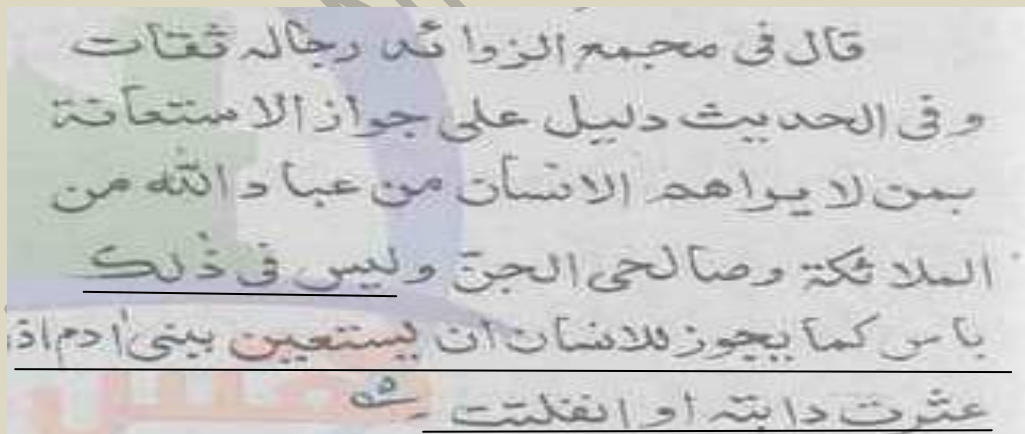 قال فی مجمع الزوائد رجالہ ثقات
و فی الحدیث دلیل علی جواز الاستعانۃ
بمن لا یراھم الانسان من عباد اللّٰہ من
الملائکۃ وصالحی الجنّ ولیس فی ذٰلک
باس کما یجوز للانسان ان یستعین ببنی اٰدم اذ
عثرت دابتہ او انفلتت